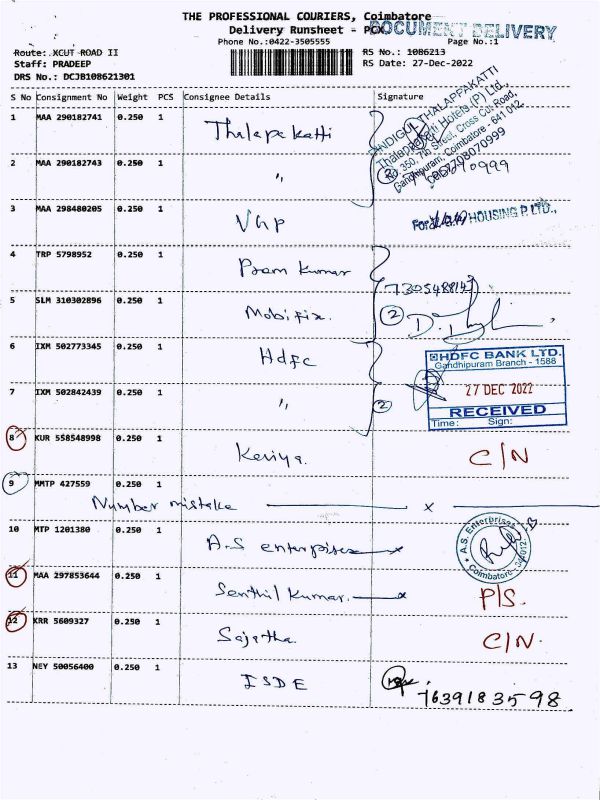 THE PROFESSIONAL COURIERS, Coimbatore
Delivery Runsheet - PCX
DOCUMENT DELIVERY
Phone No.:0422-3505555
Page No.:1
Route: XCUT ROAD II
RS No.: 1086213
Staff: PRADEEP
RS Date: 27-Dec-2022
DRS No.: DCJB108621301
S No Consignment No Weight PCS Consignee Details Signature
1 MAA 290182741 0.250 1 Thalapakatti
DINDIGUL THALAPPAKATTI
Thalappakatti Hotels (P) Ltd.,
No.350, 7th Street, Cross Cut Road,
Gandhipuram, Coimbatore - 641 012.
2 MAA 290182743 0.250 1 "
3 MAA 298480205 0.250 1 VGP
HOUSING P. LTD.,
4 TRP 5798952 0.250 1 Pram Kumar
5 SLM 310302896 0.250 1 Mobifix. 2
6 IXM 502773345 0.250 1 Hdfc
HDFC BANK LTD.
Gandhipuram Branch - 1588
27 DEC 2022
RECEIVED
Time: Sign:
7 IXM 502842439 0.250 1 " 2
8 KUR 558548998 0.250 1 Keriya. C/N
9 MMTP 427559 0.250 1
Number mistake x
10 MTP 1201380 0.250 1 A.S enterprises x
A.S. Enterprises
Coimbatore - 641012
11 MAA 297853644 0.250 1 Senthil Kumar. x P/S.
12 KRR 5609327 0.250 1 Sajetha. C/N.
13 NEY 50056400 0.250 1 ISDE
7639183598